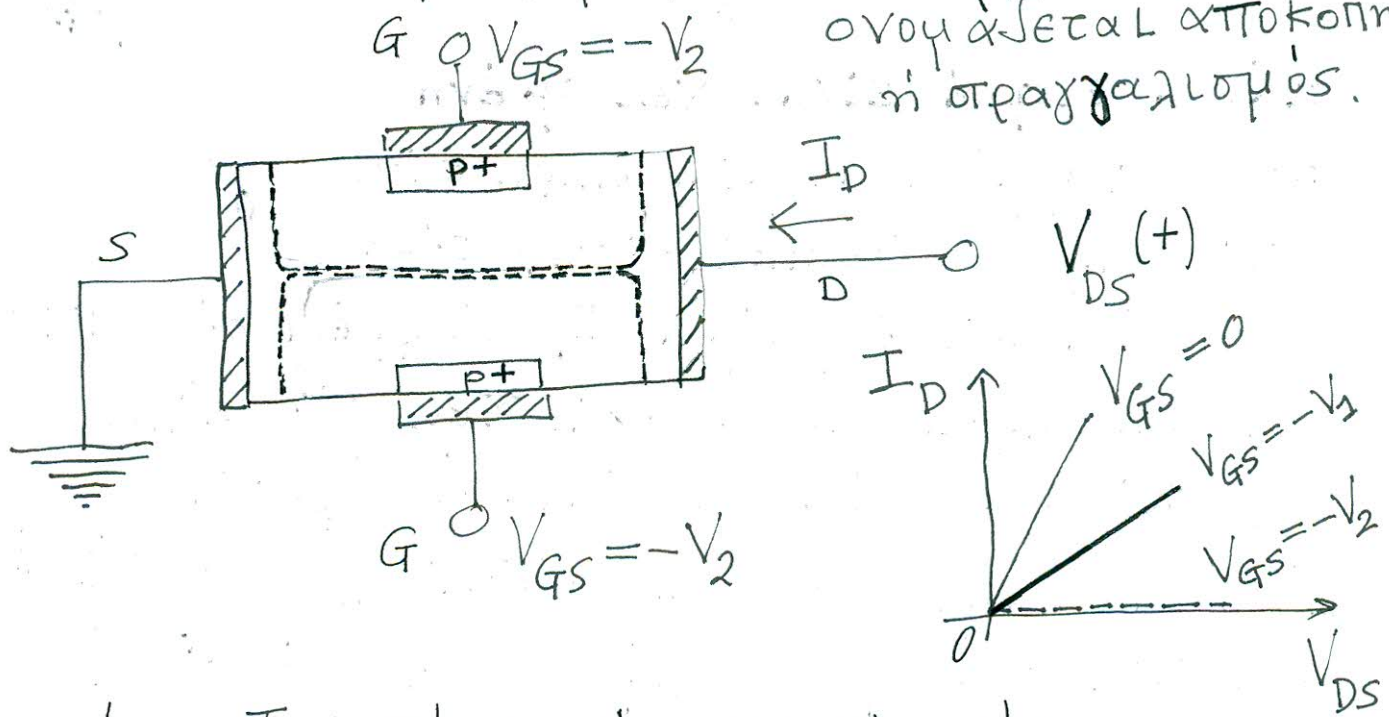 ονομάζεται αποκοπή
ή στραγγαλισμός.
G V_GS = -V_2
p+
I_D
S
D
V_DS (+)
p+
G V_GS = -V_2
I_D
V_GS = 0
V_GS = -V_1
V_GS = -V_2
0
V_DS